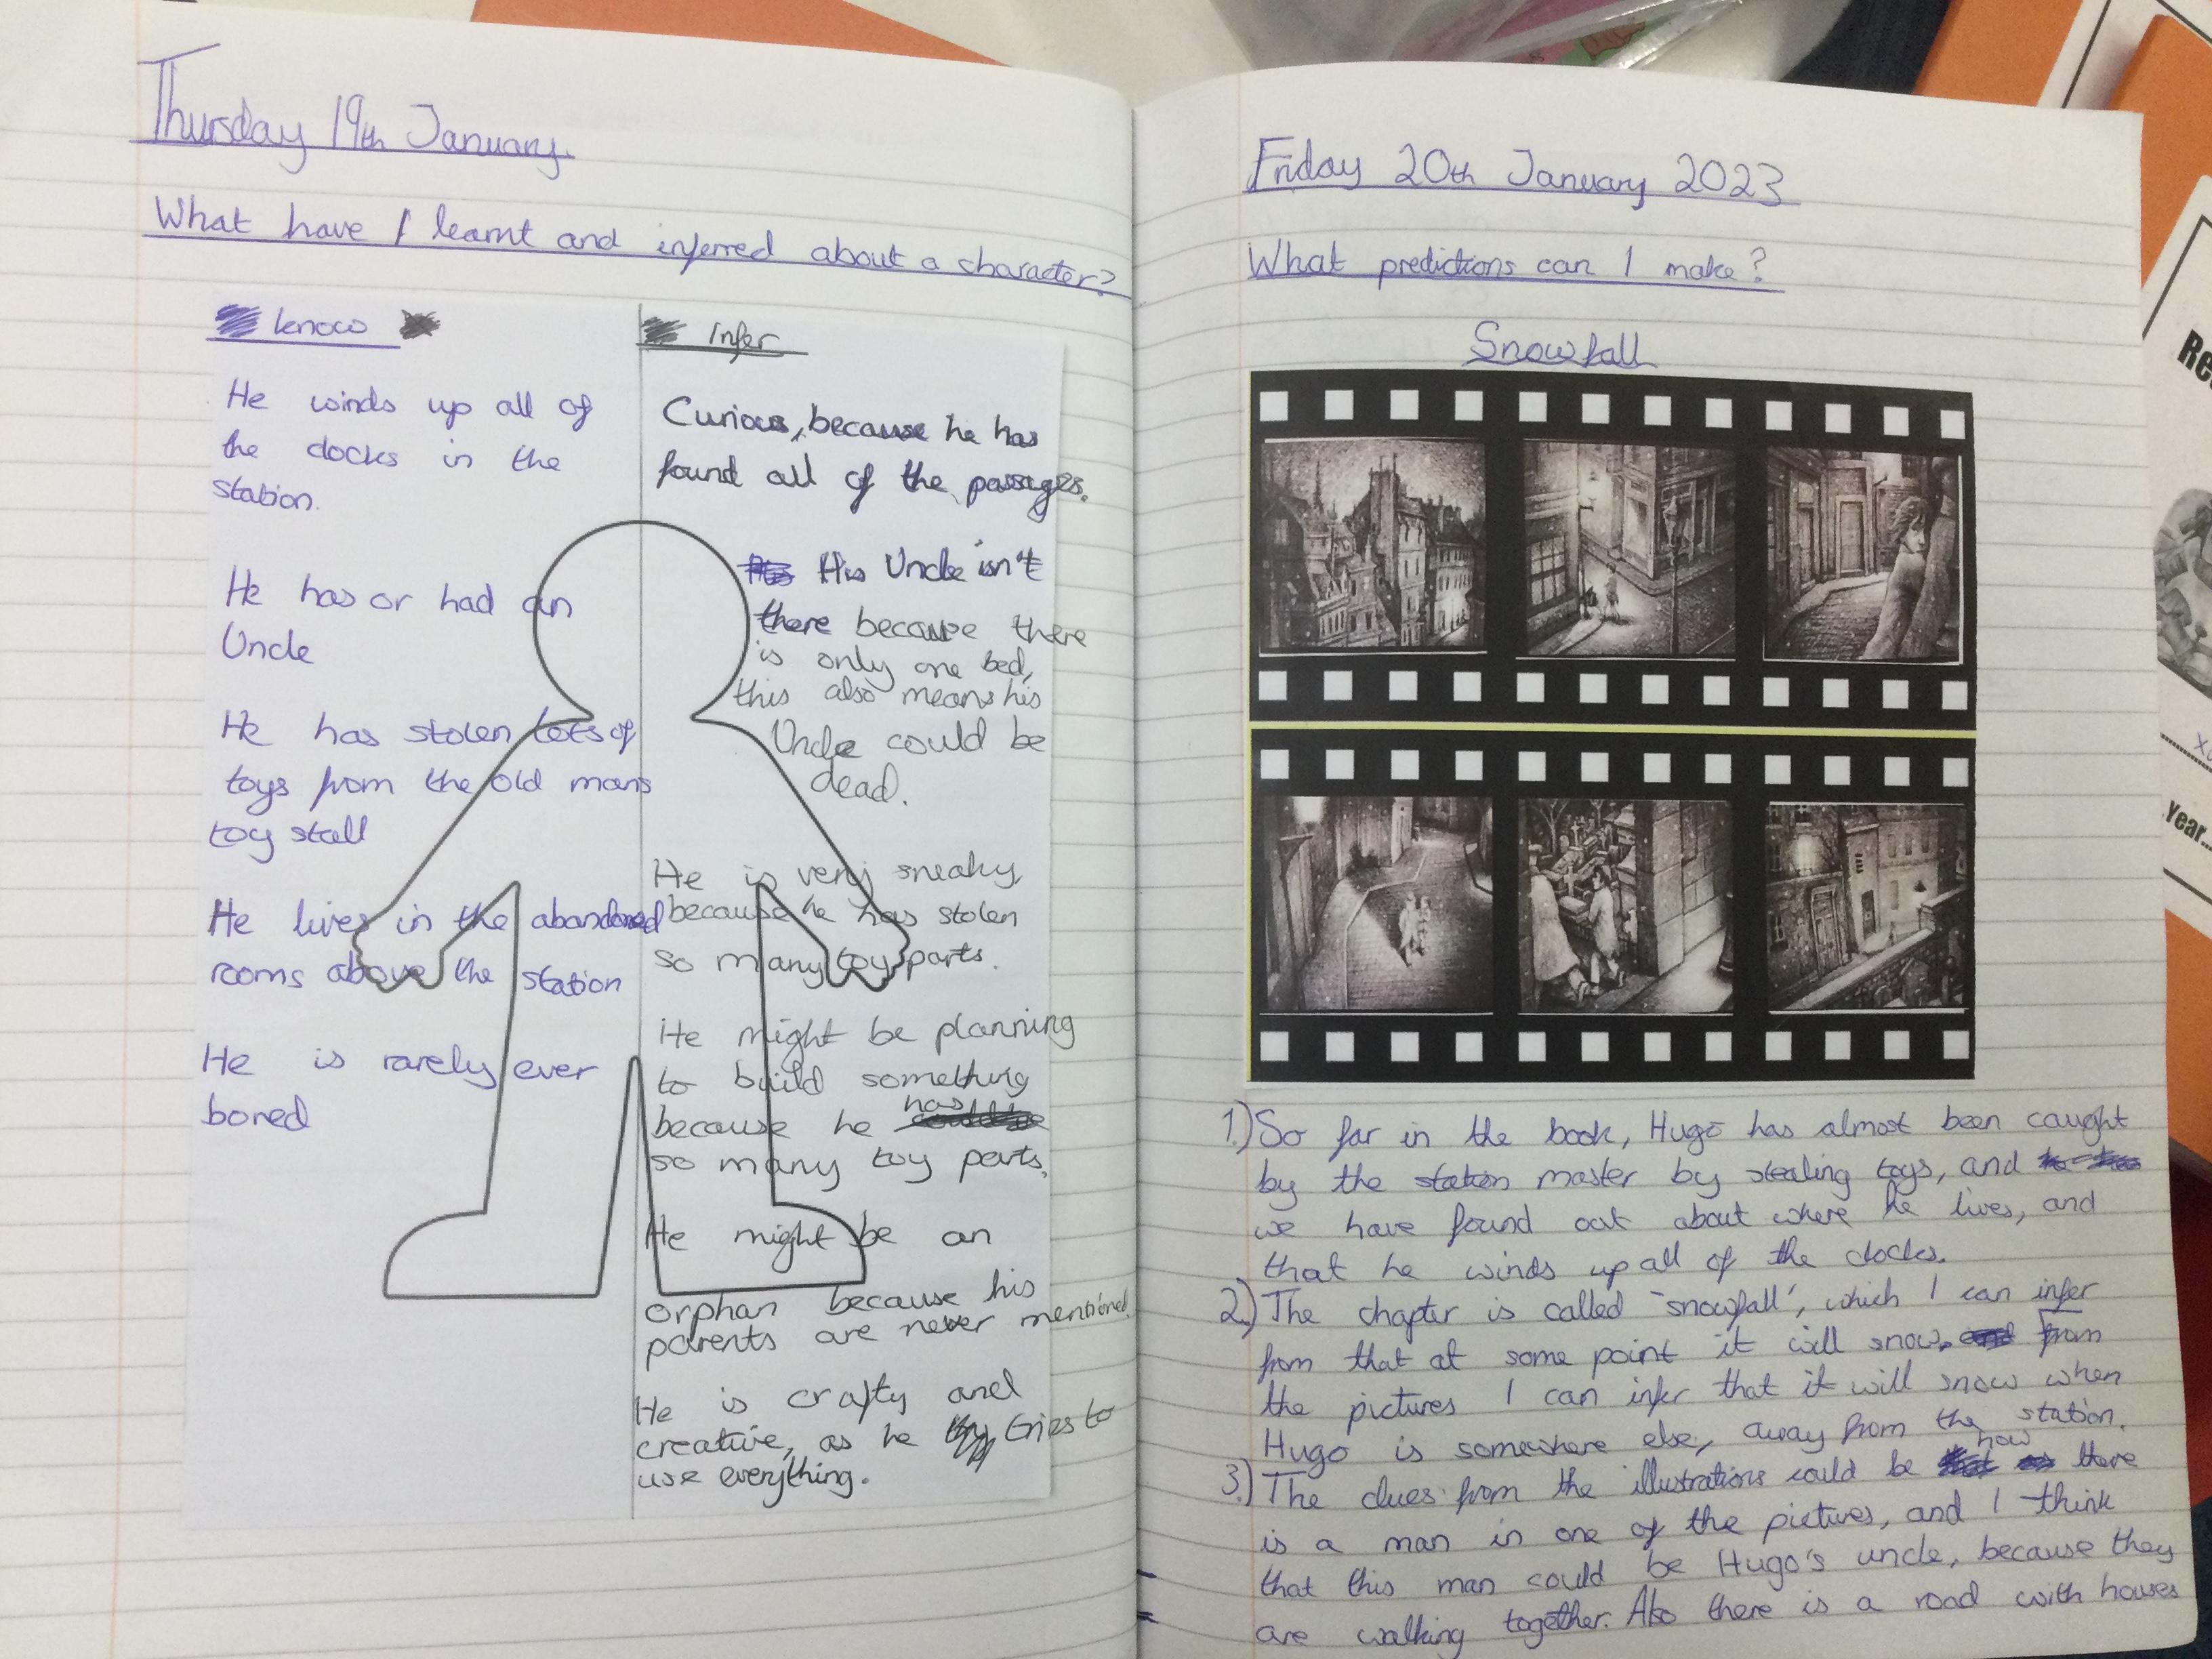 Thursday 19th January.
What have I learnt and inferred about a character?
know
He winds up all of
the clocks in the
station.
He has or had an
Uncle
He has stolen lots of
toys from the old mans
toy stall
He lives in the abandoned
rooms above the station
He is rarely ever
bored
Infer
Curious, because he has
found all of the passages.
His Uncle isn't
there because there
is only one bed,
this also means his
Uncle could be
dead.
He is very sneaky,
because he has stolen
so many toy parts.
He might be planning
to build something
because he has
so many toy parts.
He might be an
orphan because his
parents are never mentioned.
He is crafty and
creative, as he tries to
use everything.
Friday 20th January 2023
What predictions can I make?
Snowfall
1.) So far in the book, Hugo has almost been caught
by the station master by stealing toys, and
we have found out about where he lives, and
that he winds up all of the clocks.
2.) The chapter is called 'snowfall', which I can infer
from that at some point it will snow. From
the pictures I can infer that it will snow when
Hugo is somewhere else, away from the station.
3.) The clues from the illustrations could be how there
is a man in one of the pictures, and I think
that this man could be Hugo's uncle, because they
are walking together. Also there is a road with houses
Re
Year...